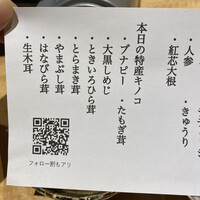 ・人参
・紅芯大根
・きゅうり
本日の特産キノコ
・ブナピー ・たもぎ茸
・大黒しめじ
・ときいろひら茸
・とらまき茸
・やまぶし茸
・はなびら茸
・生木耳
フォロー割もアリ